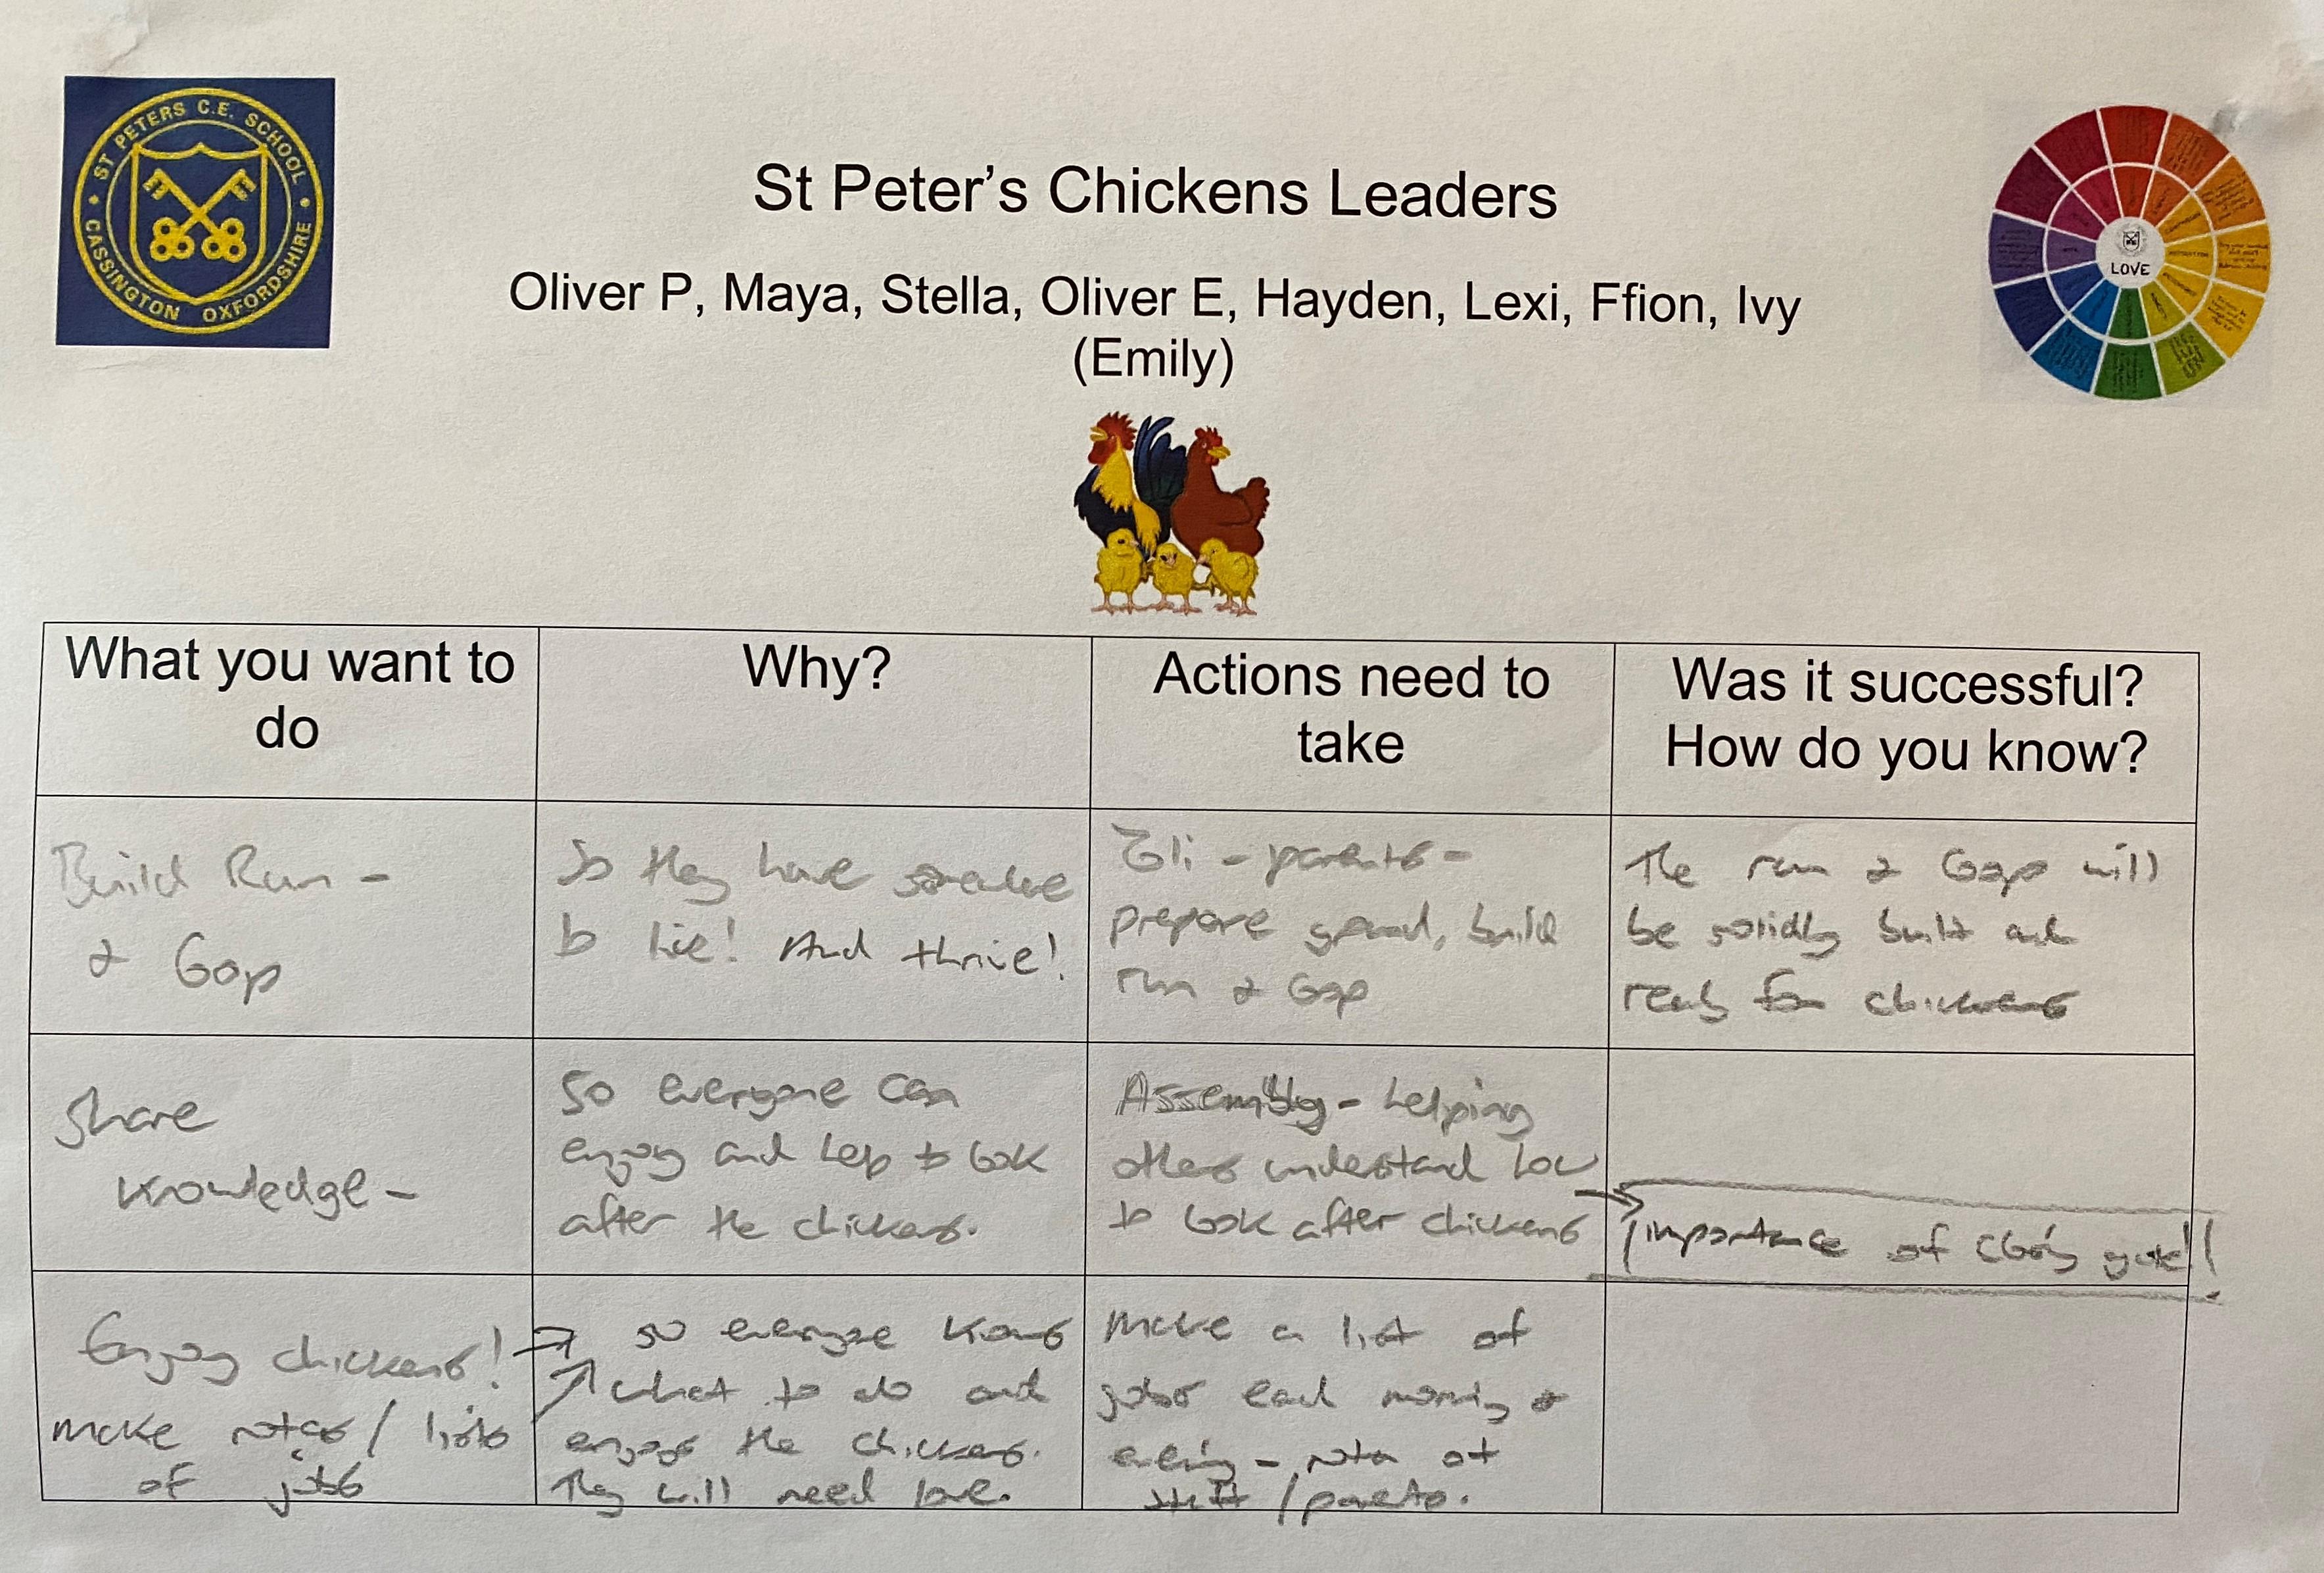 ST PETERS C.E. SCHOOL
CASSINGTON OXFORDSHIRE
St Peter's Chickens Leaders
LOVE
Oliver P, Maya, Stella, Oliver E, Hayden, Lexi, Ffion, Ivy
(Emily)
What you want to
do
Why?
Actions need to
take
Was it successful?
How do you know?
Build Run -
& Coop
So they have somewhere
to live! And thrive!
Eli - parents -
prepare ground, build
run & Coop
The run & Coop will
be solidly built and
ready for chickens
Share
Knowledge -
So everyone can
enjoy and help to look
after the chickens.
Assembly - helping
others understand how
to look after chickens
importance of closing gate!!
Enjoy chickens!
make notes / lists
of jobs
so everyone knows
what to do and
enjoys the chickens.
They will need love.
Make a list of
jobs each morning &
evening - rota of
staff / parents.